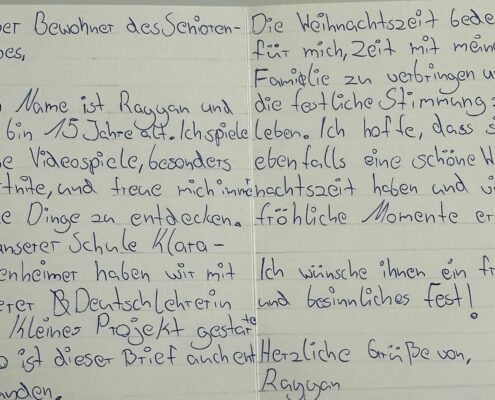 er Bewohner des Senioren-
es,
Name ist Rayyan und
bin 15 Jahre alt. Ich spiele
e Videospiele, besonders
tnite, und freue mich imme
e Dinge zu entdecken.
unserer Schule Klara-
enheimer haben wir mit
erer Deutschlehrerin
Kleines Projekt gestar
o ist dieser Brief auch ent
anden.
Die Weihnachtszeit bede
für mich, Zeit mit meine
Familie zu verbringen u
die festliche Stimmung z
leben. Ich hoffe, dass S
ebenfalls eine schöne W
nachtszeit haben und vi
fröhliche Momente er
Ich wünsche ihnen ein fr
und besinnliches Fest!
Herzliche Grüße von,
Rayyan